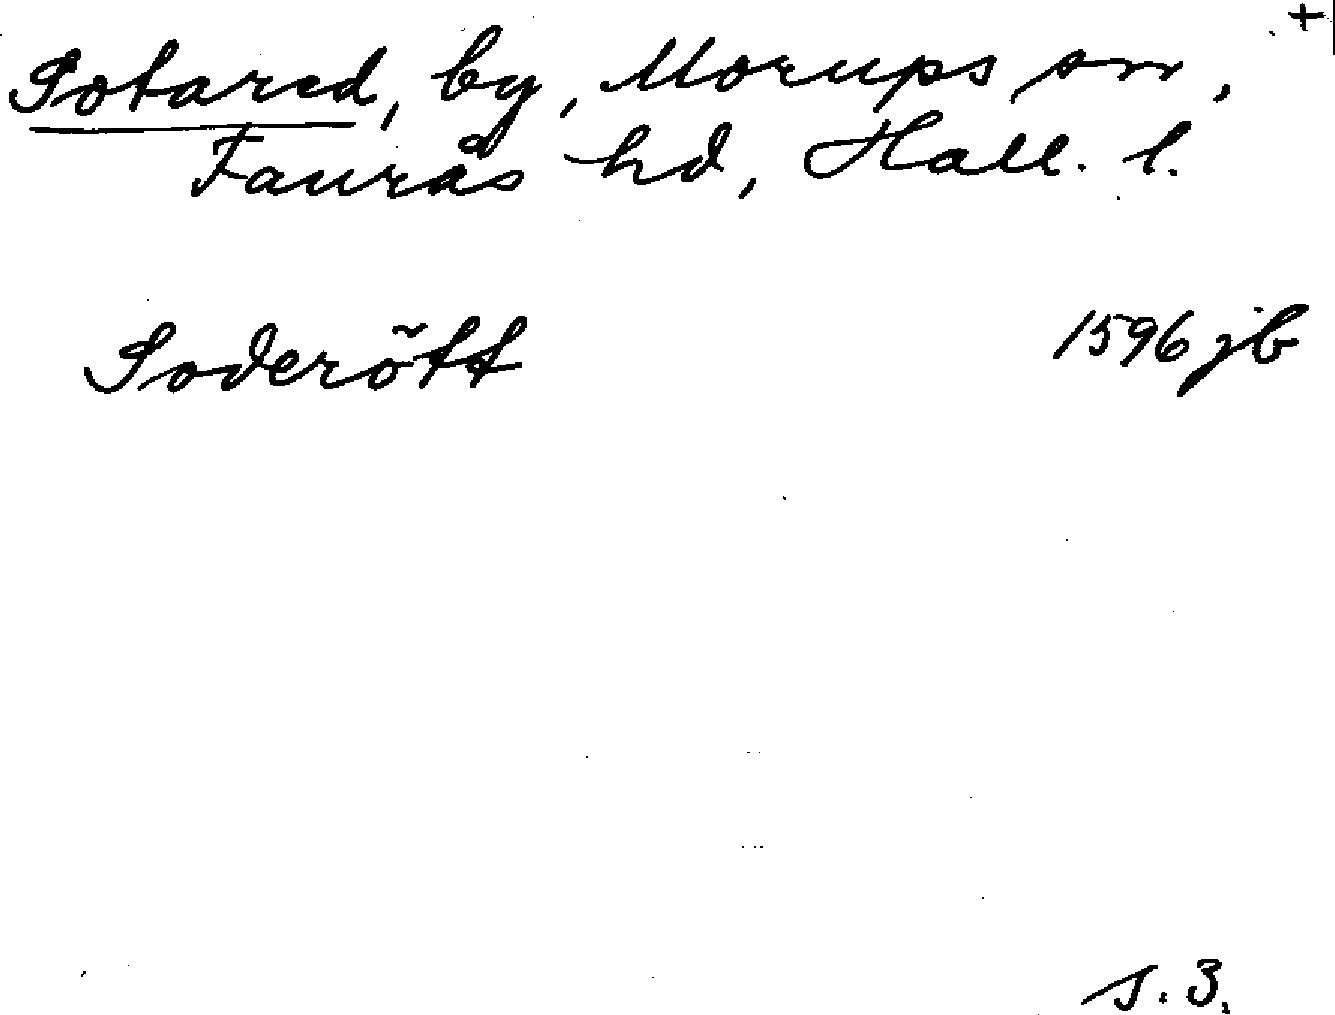 +
Sotared, by, Morups sn,
Faurås hd, Hall. l.
Soderõtt 1596 jb
s. 3.